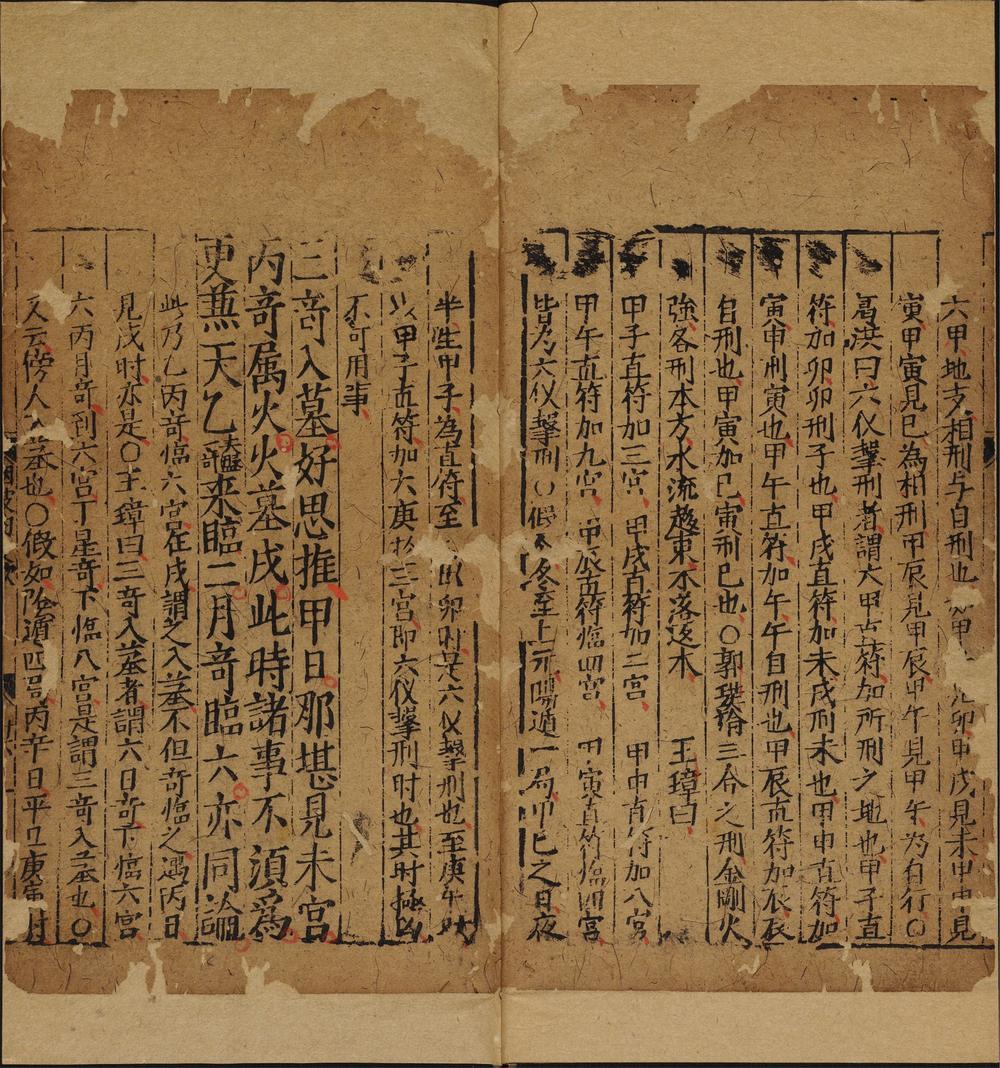 六甲地支相刑与自刑也 甲 卯甲戌見未甲申見
寅甲寅見巳為相刑甲辰見甲辰甲午見甲午为自行〇
髙洪曰六仪擊刑者謂六甲直符加所刑之地也甲子直
符加卯卯刑子也甲戌直符加未戌刑未也甲申直符加
寅申刑寅也甲午直符加午午自刑也甲辰直符加辰辰
自刑也甲寅加巳寅刑巳也〇郭璞觿三合之刑金剛火
強各刑本方水流趍東木落返木　　王璋曰
甲子直符加三宫　甲戌直符加二宫　甲申直符加八宫
甲午直符加九宫　甲辰直符臨四宫　甲寅直符臨四宫
皆为六仪擊刑〇假 冬至上元陽遁一局卯巳之日夜
半生甲子為直符至 卯 是六仪擊刑也至庚午时
以甲子直符加六庚於三宫即六仪擊刑时也其时極凶
不可用事
三竒入墓好思推甲日那堪見未宫
丙竒属火火墓戌此時諸事不須爲
更蕪天乙 来臨二月竒臨六亦同論
此乃乙丙竒臨六宫在戌謂之入墓不但竒临之遇丙日
見戌时亦是〇王璋曰三竒入墓者謂六日竒下臨六宫
六丙月竒到六宫丁星竒下臨八宫是謂三竒入墓也〇
又云傍人入墓也〇假如陰遁四局丙辛日平旦庚寅时